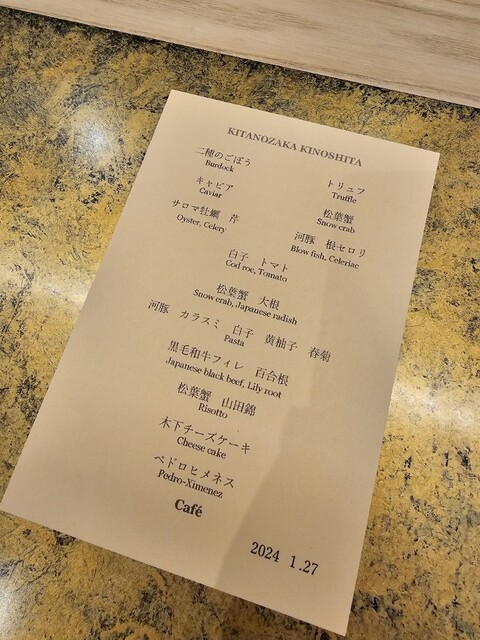 KITANOZAKA KINOSHITA
二種のごぼう
Burdock
トリュフ
Truffle
キャビア
Caviar
松葉蟹
Snow crab
サロマ牡蠣 芹
Oyster, Celery
河豚 根セロリ
Blow fish, Celeriac
白子 トマト
Cod roe, Tomato
松葉蟹 大根
Snow crab, Japanese radish
河豚 カラスミ 白子 黄柚子 春菊
Pasta
黒毛和牛フィレ 百合根
Japanese black beef, Lily root
松葉蟹 山田錦
Risotto
木下チーズケーキ
Cheese cake
ペドロヒメネス
Pedro-Ximenez
Café
2024 1.27